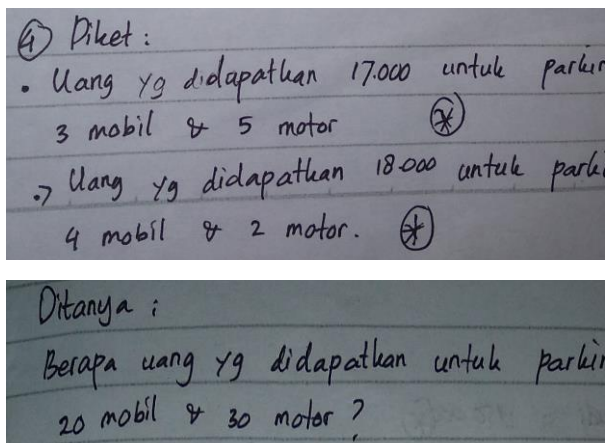 ④ Diket :
• Uang yg didapatkan 17.000 untuk parkir
3 mobil & 5 motor *
•> Uang yg didapatkan 18.000 untuk parki
4 mobil & 2 motor. *
Ditanya :
Berapa uang yg didapatkan untuk parkir
20 mobil & 30 motor ?